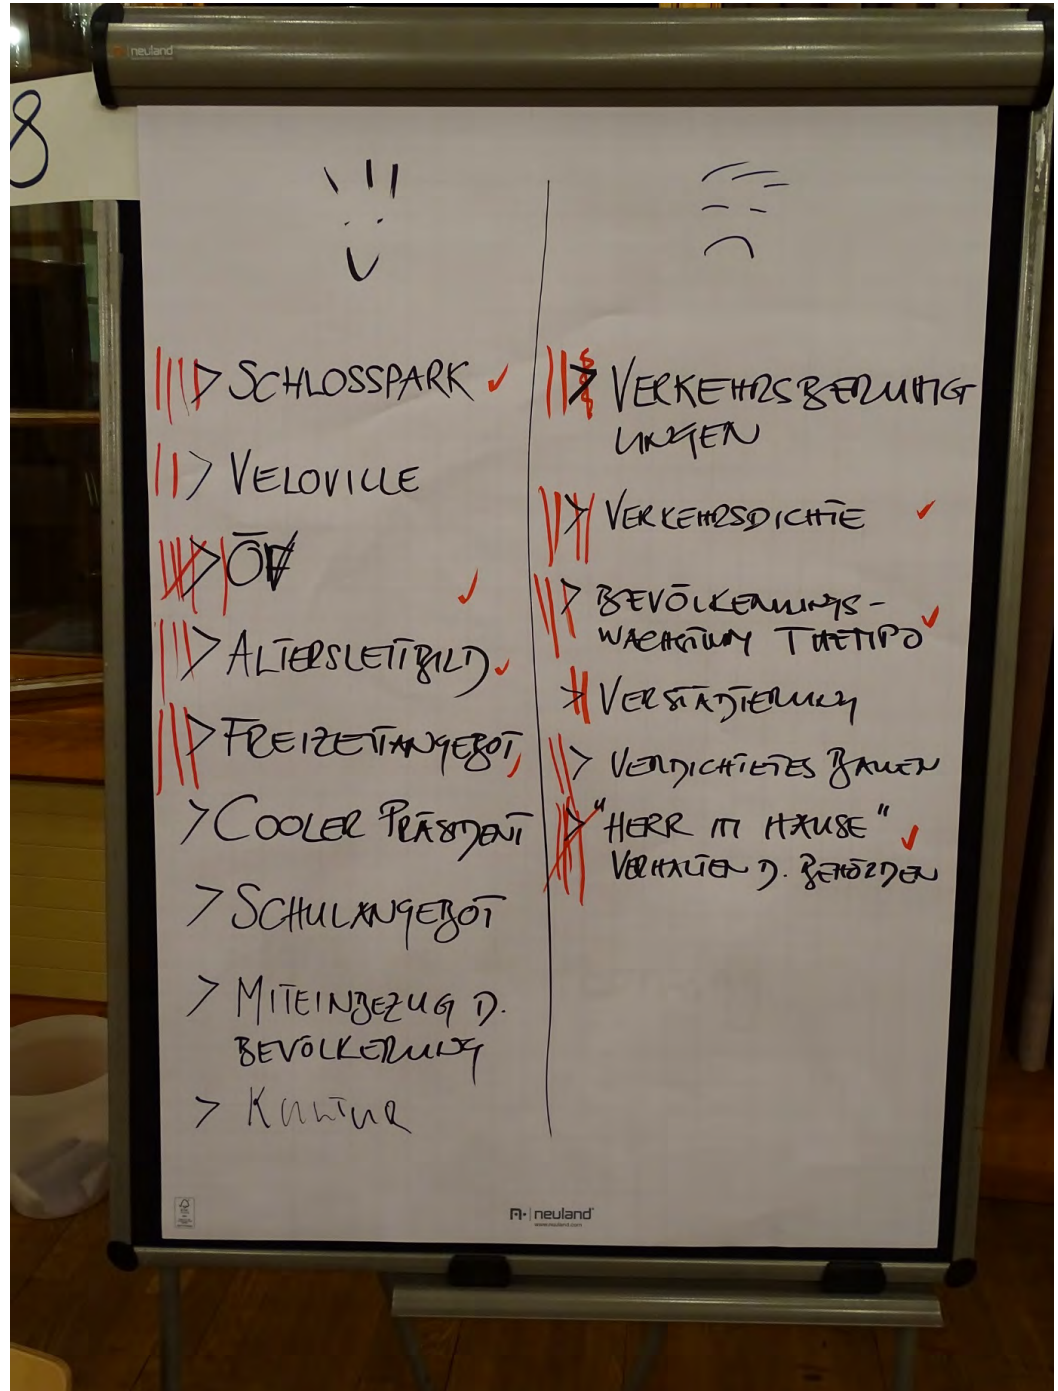 neuland
8
> SCHLOSSPARK ✓
> VELOVILLE
> ÖV ✓
> ALTERSLEITBILD ✓
> FREIZEITANGEBOT ✓
> COOLER PRÄSIDENT
> SCHULANGEBOT
> MITEINBEZUG D.
BEVÖLKERUNG
> KULTUR
> VERKEHRSBERUHIG
UNGEN
> VERKEHRSDICHTE ✓
> BEVÖLKERUNGS-
WACHSTUM ✓
> VERSTÄDTERUNG
> VERDICHTETES BAUEN
> "HERR IM HAUSE" ✓
VERHALTEN D. BEHÖRDEN
neuland
www.neuland.com